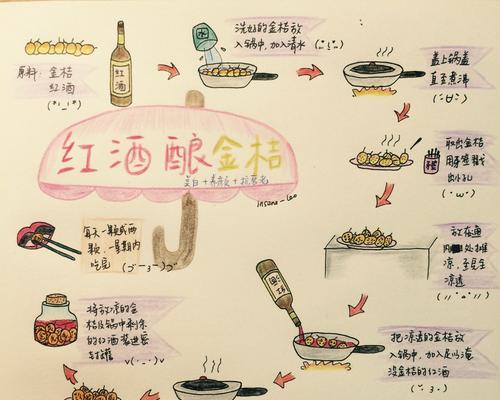 原料：金桔
红酒
(*¯︶¯*)
红酒
洗好的金桔放
入锅中，加入清水
盖上锅盖
直至煮沸
取出金桔
用牙签戳
出小孔
(·ω·)
放在通
风处摊
凉，至完全
凉透
把凉透的金桔放
入锅中，加入足以淹
没金桔的红酒
(·3·)
红酒
将放凉的金
桔及锅中剩余
的红酒装进密
封罐
每天一颗或两
颗，一星期内
吃完
红酒酿金桔
美白+养颜+抗衰老
insane_Lao